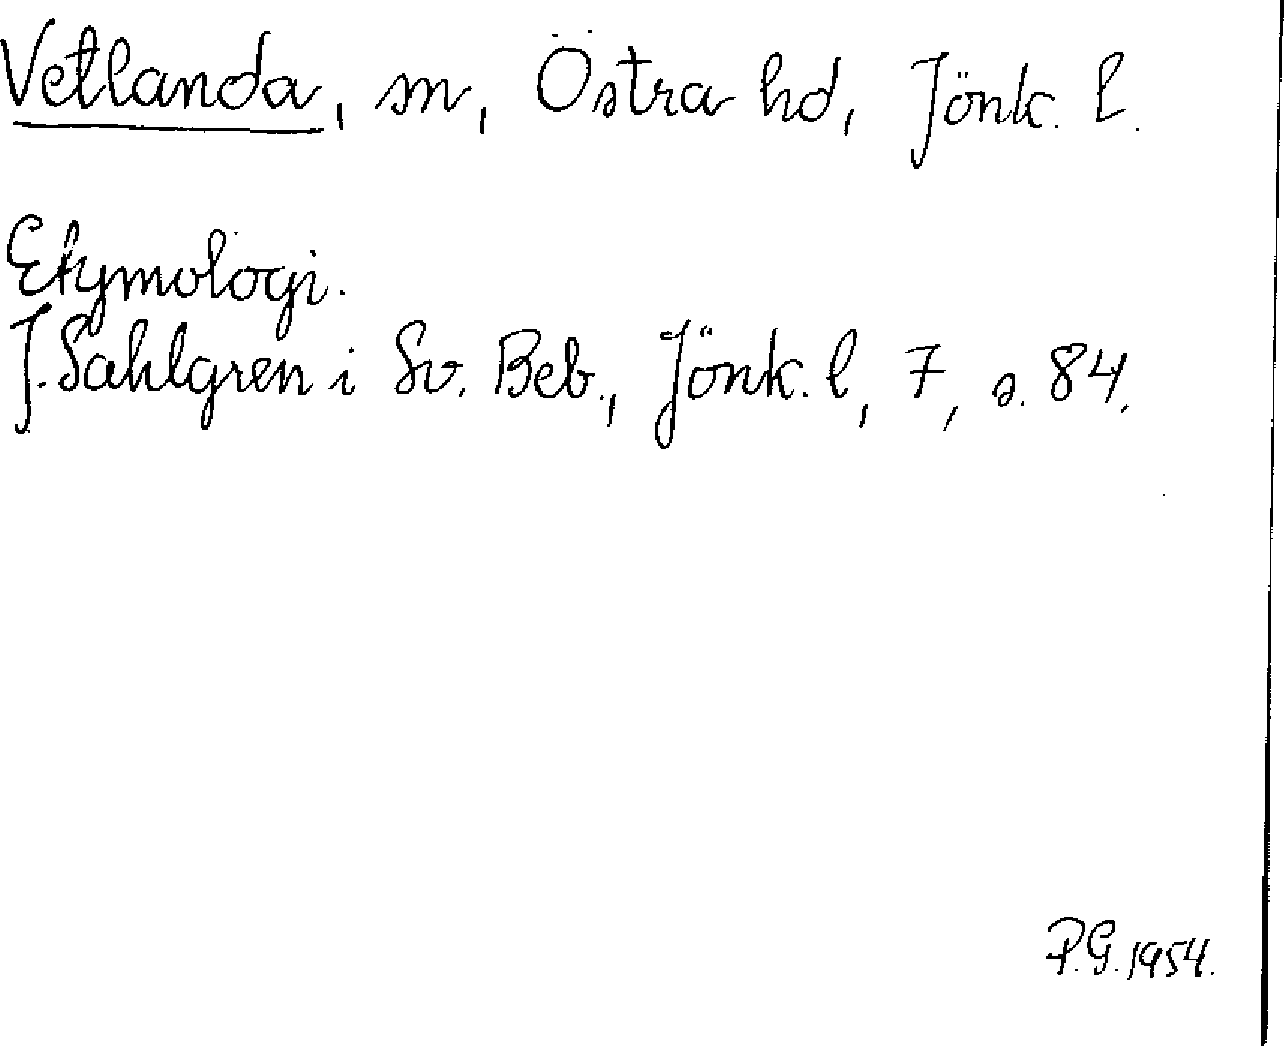 Vetlanda, sn, Östra hd, Jönk. l.
Etymologi.
J. Sahlgren i Sv. Beb., Jönk. l, 7, s. 84.
P.G. 1954.